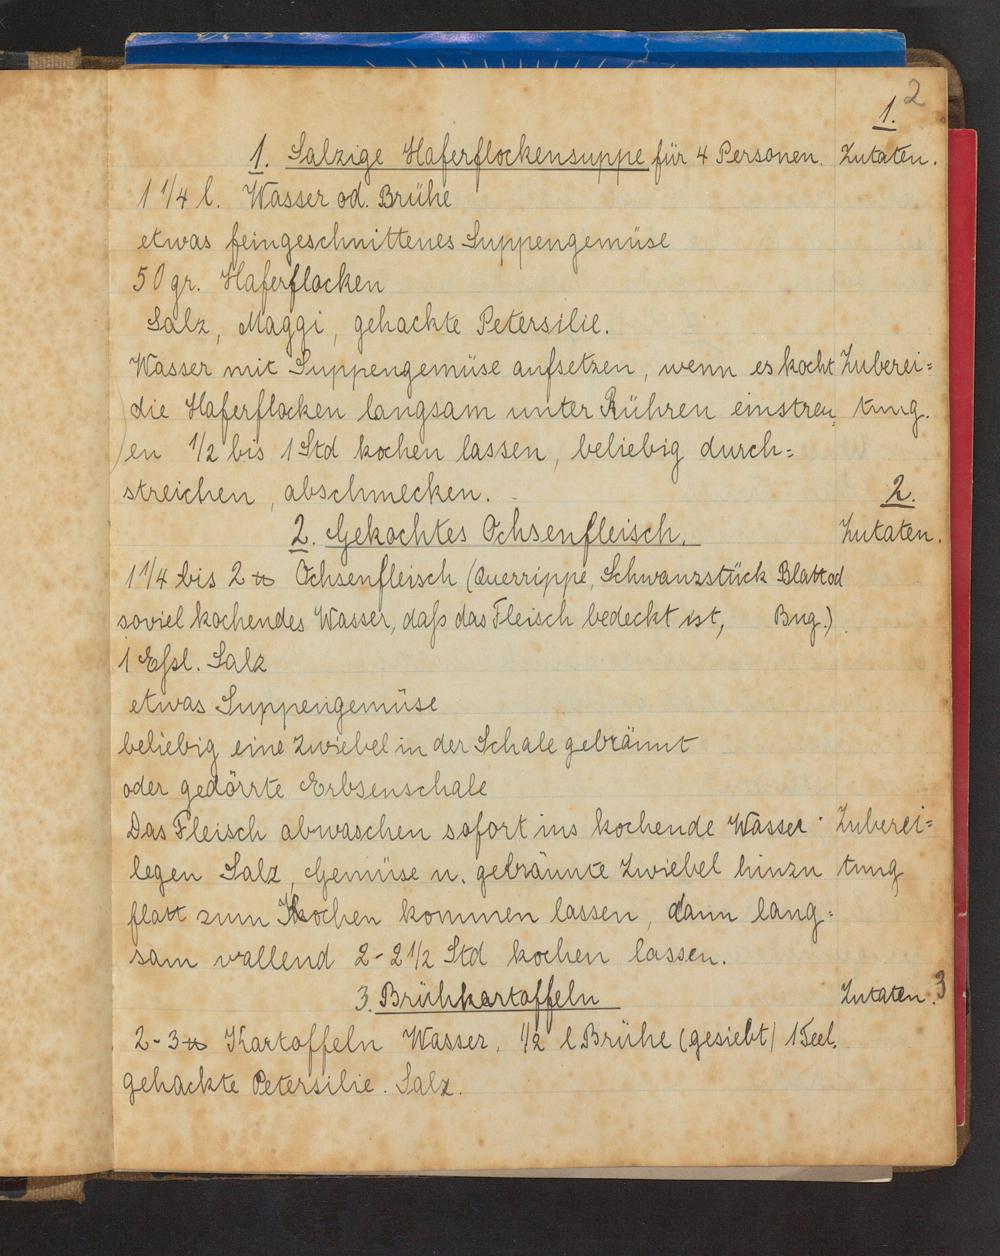 2
1.
1. Salzige Haferflockensuppe für 4 Personen. Zutaten.
1 1/4 l. Wasser od. Brühe
etwas feingeschnittenes Suppengemüse
50 gr. Haferflocken
Salz, Maggi, gehackte Petersilie.
Wasser mit Suppengemüse aufsetzen, wenn es kocht Zuberei=
die Haferflocken langsam unter Rühren einstreu tung.
en 1/2 bis 1 Std kochen lassen, beliebig durch=
streichen, abschmecken.
2.
2. Gekochtes Ochsenfleisch. Zutaten.
1 1/4 bis 2 ℔ Ochsenfleisch (Querrippe, Schwanzstück Blatt od
soviel kochendes Wasser, daß das Fleisch bedeckt ist, Bug.)
1 Eßl. Salz
etwas Suppengemüse
beliebig eine Zwiebel in der Schale gebräunt
oder gedörrte Erbsenschale
Das Fleisch abwaschen sofort ins kochende Wasser Zuberei=
legen Salz, Gemüse u. gebräunte Zwiebel hinzu tung
flott zum Kochen kommen lassen, dann lang=
sam wallend 2-2 1/2 Std kochen lassen.
3. Brühkartoffeln Zutaten. 3
2-3 ℔ Kartoffeln Wasser, 1/2 l Brühe (gesiebt) 1 Teel.
gehackte Petersilie. Salz.